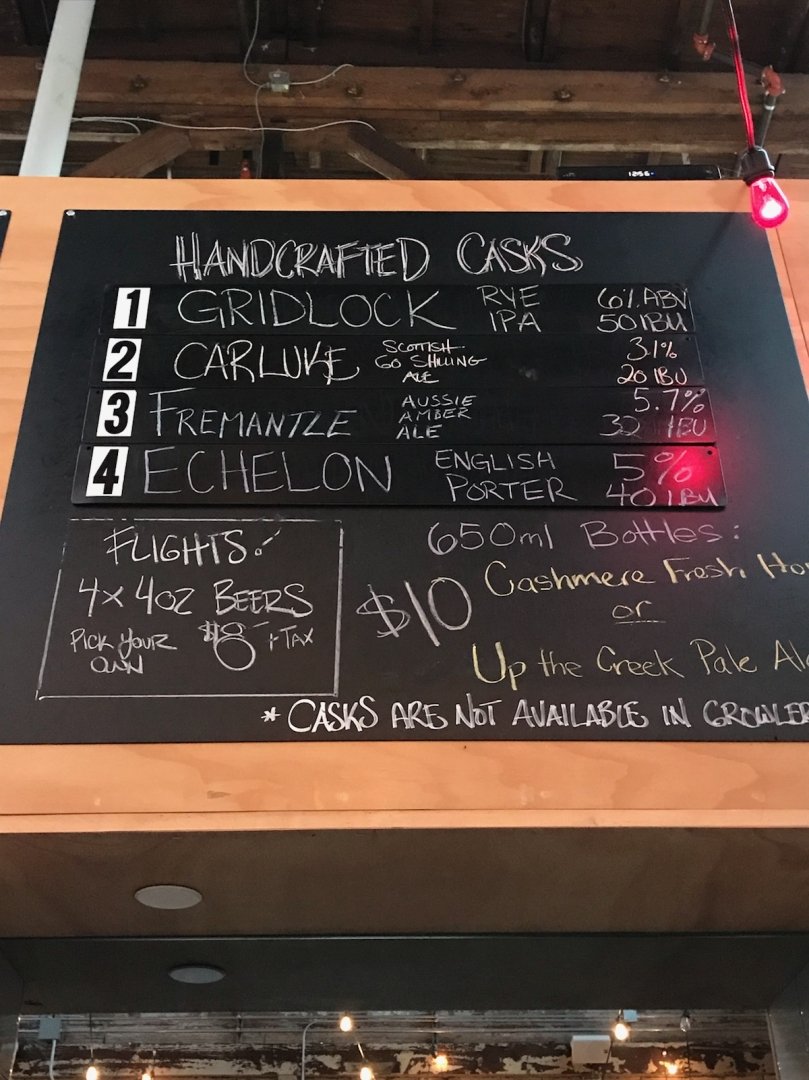 12:56
HANDCRAFTED CASKS
1 GRIDLOCK RYE IPA 6% ABV 50 IBU
2 CARLUKE SCOTTISH 60 SHILLING ALE 3.1% 20 IBU
3 FREMANTLE AUSSIE AMBER ALE 5.7% 32 IBU
4 ECHELON ENGLISH PORTER 5% 40 IBU
FLIGHTS:
4x 4oz BEERS
PICK YOUR OWN $8 + TAX
650ml Bottles:
$10 Cashmere Fresh Ho
or
Up the Creek Pale Al
* CASKS ARE NOT AVAILABLE IN GROWLER